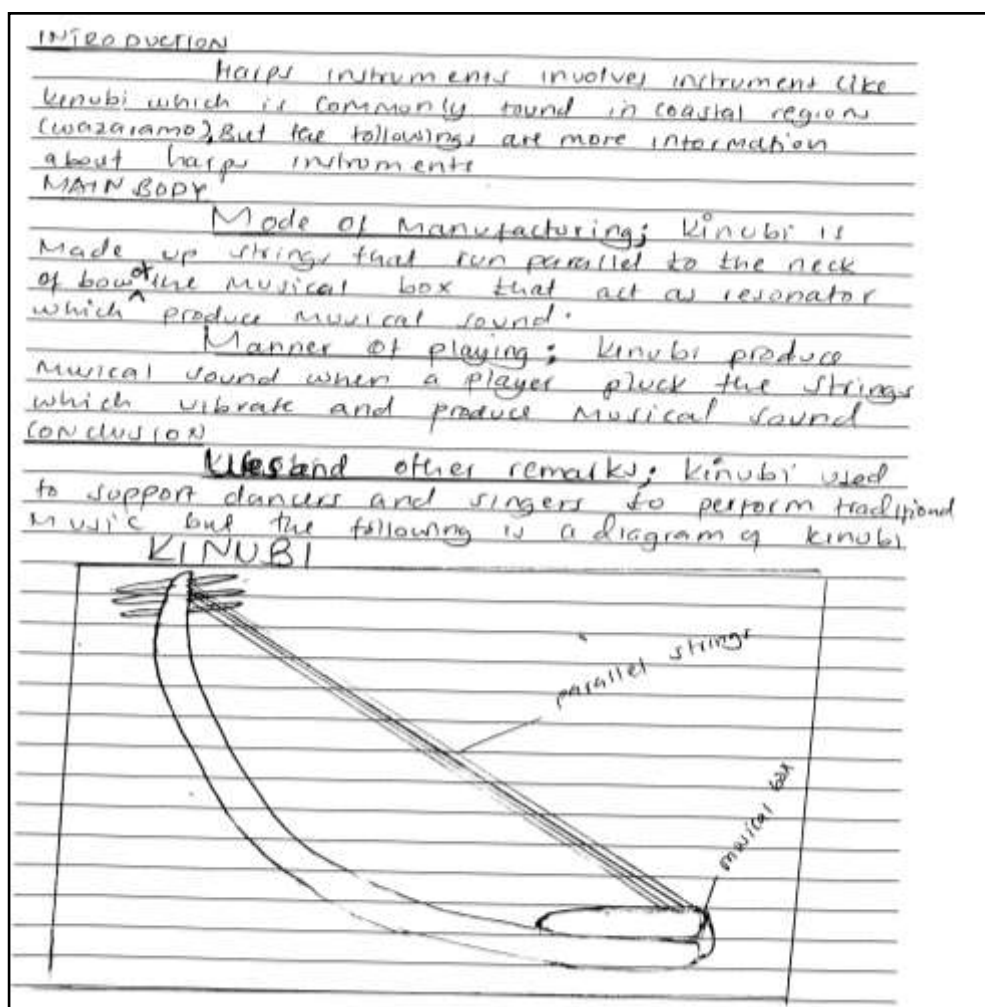 INTRODUCTION
Harps instruments involves instrument like
kinubi which is commonly found in coastal regions
(wazaramo), But the followings are more information
about harps instruments
MAIN BODY
Mode of Manufacturing; Kinubi is
Made up strings that run parallel to the neck
of bow or the musical box that act as resonator
which produce musical sound.
Manner of playing; Kinubi produce
musical sound when a player pluck the strings
which vibrate and produce musical sound
CONCLUSION
Uses and other remarks; Kinubi used
to support dancers and singers to perform traditional
Music but the following is a diagram of kinubi
KINUBI
parallel strings
musical box